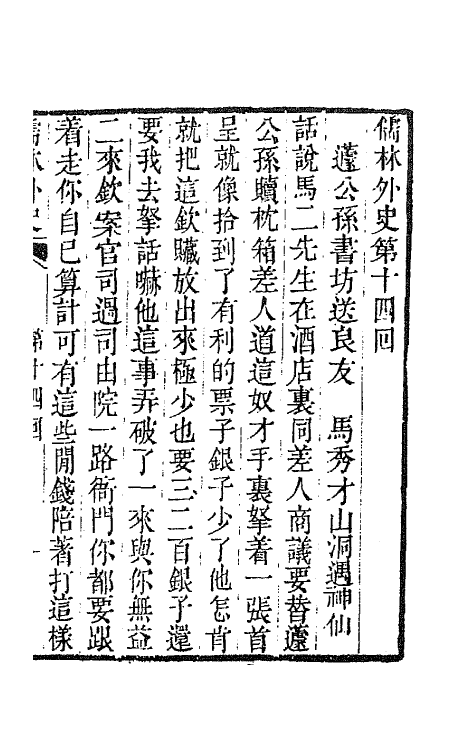 儒林外史第十四回
蘧公孫書坊送良友　馬秀才山洞遇神仙
話說馬二先生在酒店裏同差人商議要替蘧
公孫贖枕箱差人道這奴才手裏拏着一張首
呈就像拾到了有利的票子銀子少了他怎肯
就把這欽贓放出來極少也要三二百銀子還
要我去拏話嚇他這事弄破了一來與你無益
二來欽案官司過司由院一路衙門你都要跟
着走你自己算計可有這些閒錢陪著打這樣
儒林外史　第十四回　一